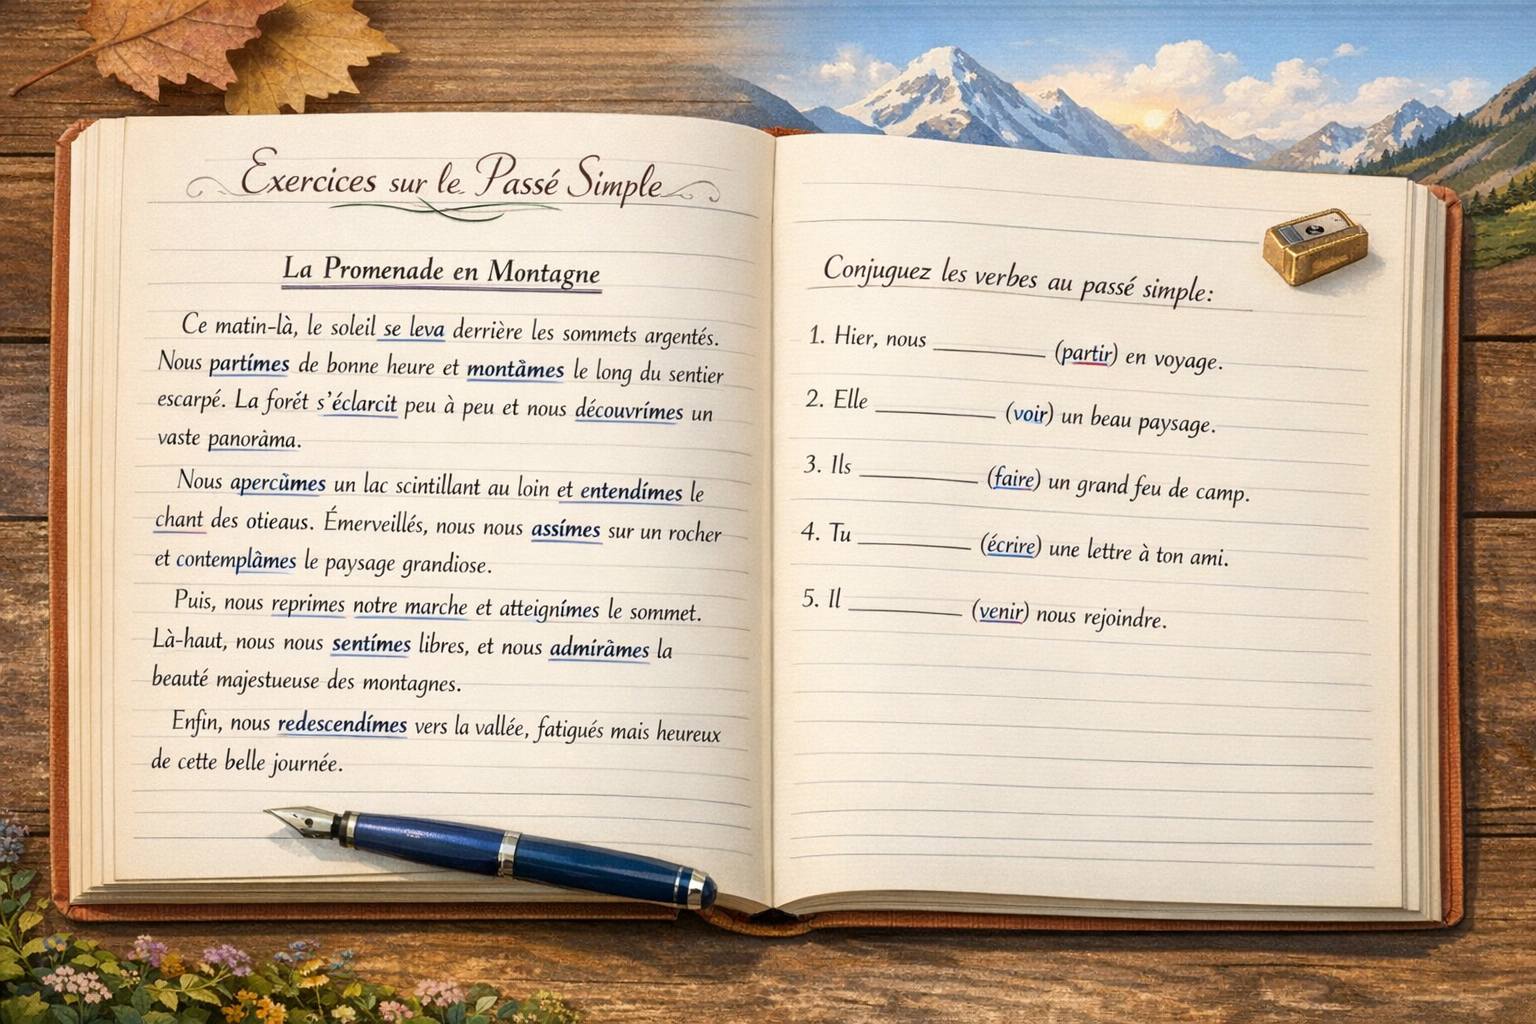 Exercices sur le Passé Simple
La Promenade en Montagne
Ce matin-là, le soleil se leva derrière les sommets argentés.
Nous partímes de bonne heure et montâmes le long du sentier
escarpé. La forét s'éclarcit peu à peu et nous découvrímes un
vaste panoràma.
Nous apercûmes un lac scintillant au loin et entendímes le
chant des otieaus. Émerveillés, nous nous assímes sur un rocher
et contemplâmes le paysage grandiose.
Puis, nous reprimes notre marche et atteignímes le sommet.
Là-haut, nous nous sentímes libres, et nous admirâmes la
beauté majestueuse des montagnes.
Enfin, nous redescendímes vers la vallée, fatigués mais heureux
de cette belle journée.
Conjuguez les verbes au passé simple:
1. Hier, nous __________ (partir) en voyage.
2. Elle __________ (voir) un beau paysage.
3. Ils __________ (faire) un grand feu de camp.
4. Tu __________ (écrire) une lettre à ton ami.
5. Il __________ (venir) nous rejoindre.